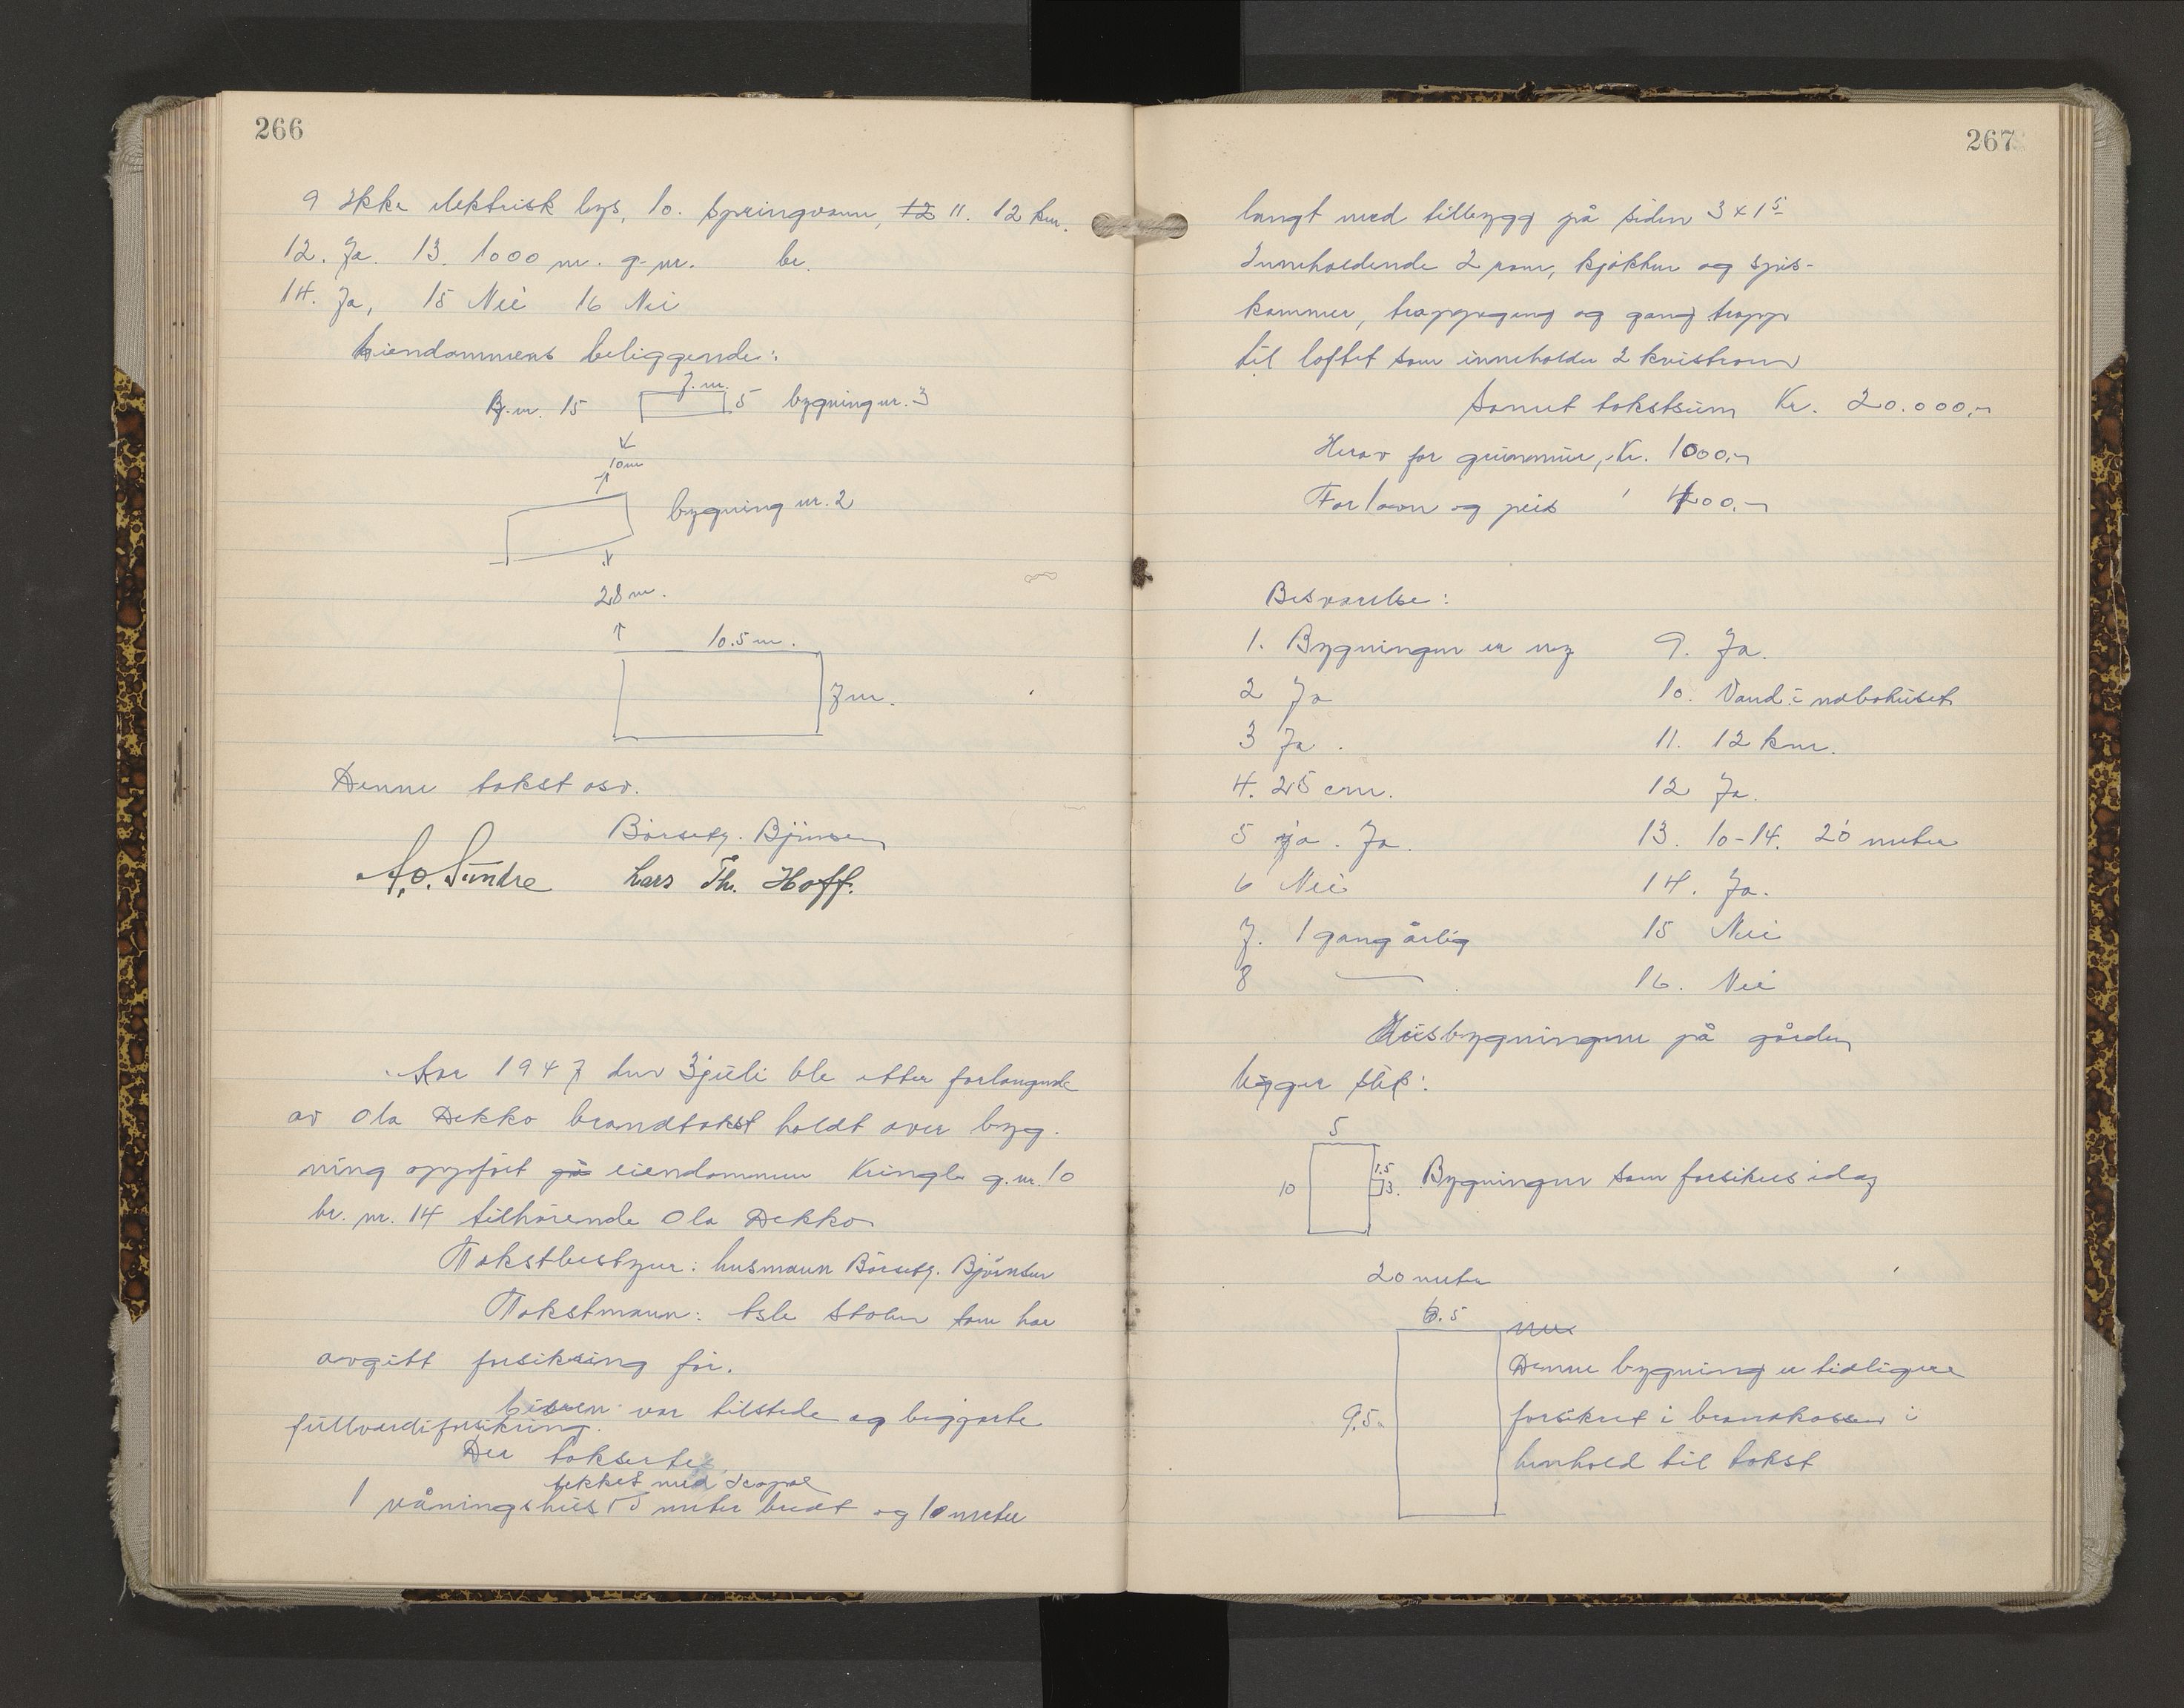 266
9 Ikke elektrisk lys, 10. Springvann, 12 11. 12 km.
12. Ja. 13. 1000 m. g. nr. br.
14. Ja, 15 Nei 16 Nei
Eiendommens beliggende:
B.nr. 15 7. m. 5 bygning nr. 3
10 m
bygning nr. 2
28 m.
10.5 m.
7 m.
Denne takst osv.
Børsety. Bjørnsen
A. O. Sundre Lars Th. Hoff.
Aar 1947 den 3 juli ble etter forlangende
av Ola Dekko brandtakst holdt over byg-
ning oppført på eiendommen Kringla g. nr. 10
br. nr. 14 tilhørende Ola Dekko
Takstbestyrer: lensmann Børsety. Bjørnsen
Takstmann: Asle Stolen som har
avgitt forsikring før.
Eieren var tilstede og begjærte
fullverdiforsikring.
Der taksertes
tekket med
1 våningshus 5 meter bredt og 10 meter
267
langt med tilbygg på siden 3 x 1 5
Inneholdende 2 rom, kjøkken og spis-
kammer, trappegang og gang trapp
til loftet som inneholder 2 kvistrom
Samet takstsum Kr. 20.000,-
Herav for grunnmur, Kr. 1000,-
For lovn og peis ' 400,-
Besvarelse:
1. Bygningen er ny 9. Ja.
2 Ja 10. Vand i nabohuset
3 Ja. 11. 12 km.
4. 25 cm. 12 Ja.
5 ja. Ja. 13. 10-14. 20 meter
6 Nei 14. Ja.
7. 1 gang årlig 15 Nei
8 — 16. Nei
Husbygningene på gården
ligger slik:
5
10 1.5 3. Bygningen som forsikres idag
20 meter
6.5
Denne bygning er tidligere
9.5 forsikret i brandkassen i
henhold til takst